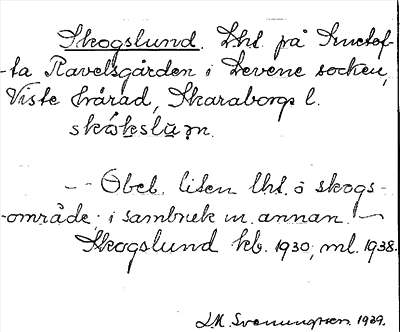 Skogslund. Lht. på Smetof-
ta Ravelsgården i Levene socken,
Viste härad, Skaraborgs l.
skɷ́kslūn.
—— Obeb. liten lht. å skogs-
område; i sambruk m. annan. —
Skogslund kb. 1930; ml. 1938.
1939.